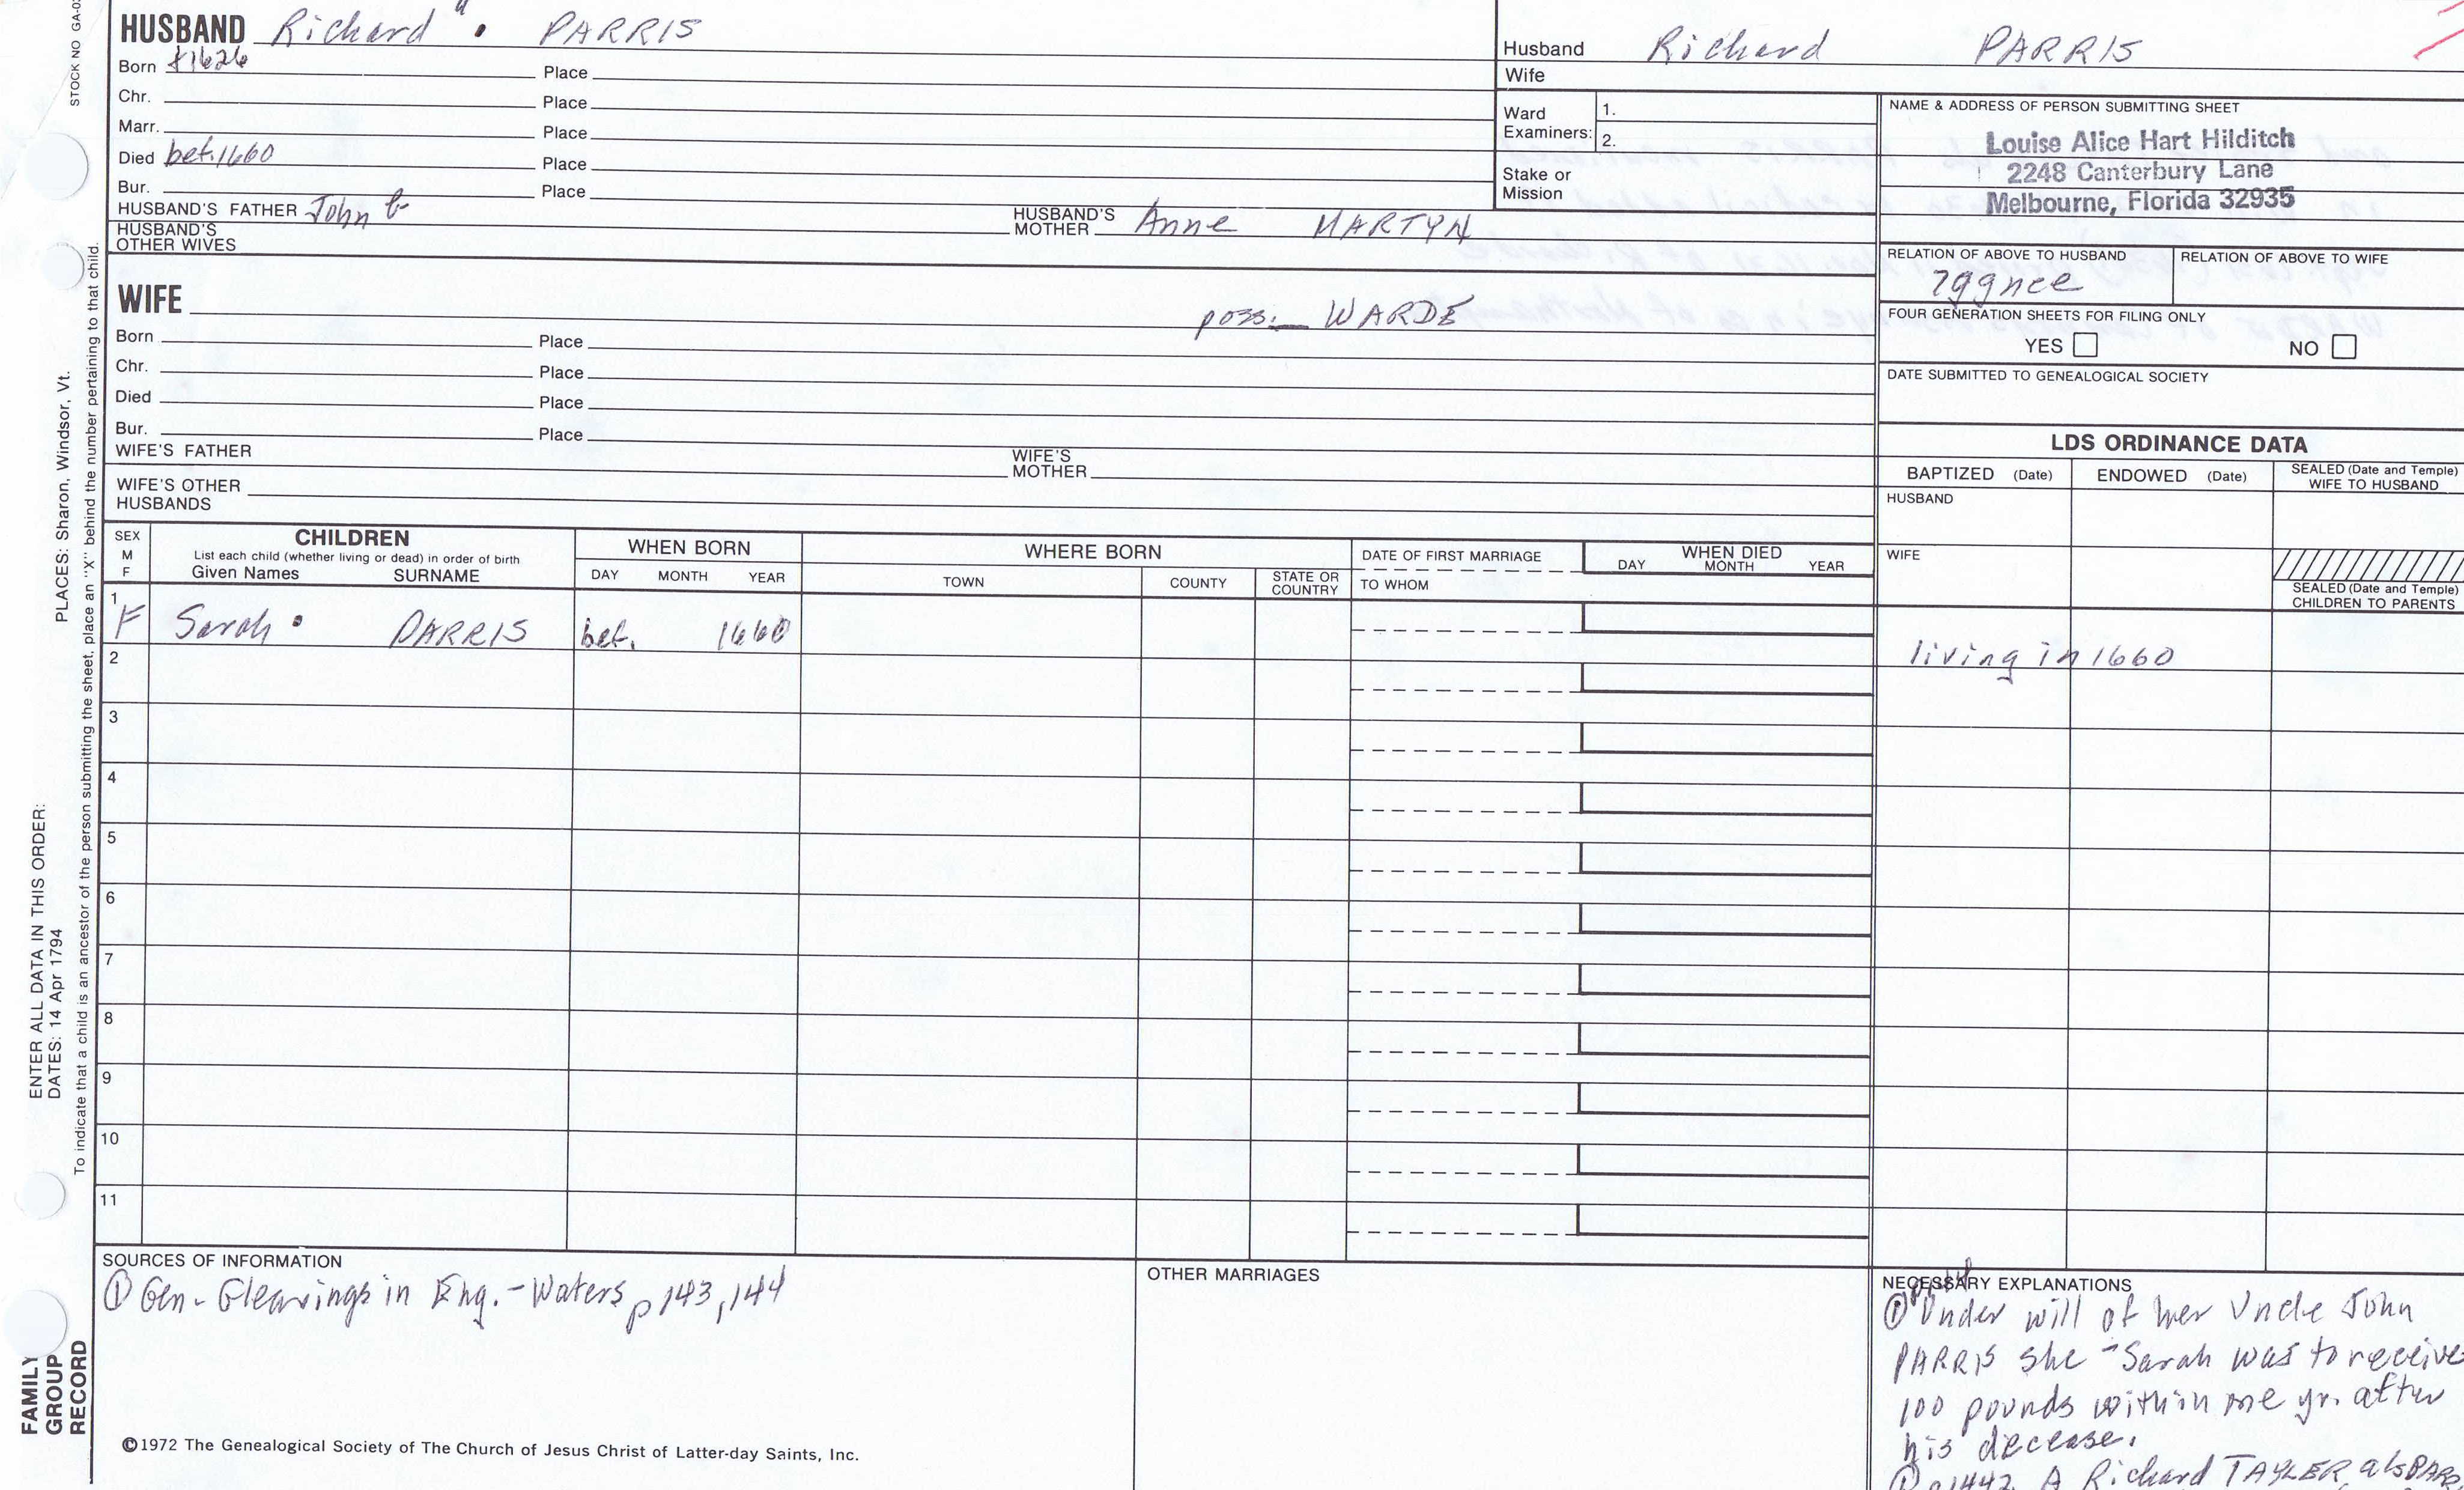 STOCK NO GA-0
HUSBAND Richard " • PARRIS
Born ±1626 Place
Chr. Place
Marr. Place
Died bet. 1660 Place
Bur. Place
HUSBAND'S FATHER John
HUSBAND'S MOTHER Anne MARTYN
HUSBAND'S OTHER WIVES
WIFE poss. WARDE
Born Place
Chr. Place
Died Place
Bur. Place
WIFE'S FATHER
WIFE'S MOTHER
WIFE'S OTHER HUSBANDS
Husband Richard PARRIS
Wife
Ward Examiners: 1.
2.
Stake or Mission
NAME & ADDRESS OF PERSON SUBMITTING SHEET
Louise Alice Hart Hilditch
2248 Canterbury Lane
Melbourne, Florida 32935
RELATION OF ABOVE TO HUSBAND RELATION OF ABOVE TO WIFE
7ggnce
FOUR GENERATION SHEETS FOR FILING ONLY
YES NO
DATE SUBMITTED TO GENEALOGICAL SOCIETY
LDS ORDINANCE DATA
BAPTIZED (Date) ENDOWED (Date) SEALED (Date and Temple) WIFE TO HUSBAND
HUSBAND
WIFE
SEALED (Date and Temple) CHILDREN TO PARENTS
SEX M F
CHILDREN
List each child (whether living or dead) in order of birth
Given Names SURNAME
WHEN BORN
DAY MONTH YEAR
WHERE BORN
TOWN COUNTY STATE OR COUNTRY
DATE OF FIRST MARRIAGE
TO WHOM
WHEN DIED
DAY MONTH YEAR
1
F Sarah • PARRIS bet. 1660
living in 1660
2
3
4
5
6
7
8
9
10
11
SOURCES OF INFORMATION
① Gen. Gleanings in Eng. - Waters p 143, 144
OTHER MARRIAGES
NECESSARY EXPLANATIONS
① Under will of her Uncle John
PARRIS she - Sarah was to receive
100 pounds within one yr. after
his decease.
① p1442 A Richard TAYLER als PARR
©1972 The Genealogical Society of The Church of Jesus Christ of Latter-day Saints, Inc.
PLACES: Sharon, Windsor, Vt.
ENTER ALL DATA IN THIS ORDER:
DATES: 14 Apr 1794
To indicate that a child is an ancestor of the person submitting the sheet, place an "X" behind the number pertaining to that child.
FAMILY
GROUP
RECORD